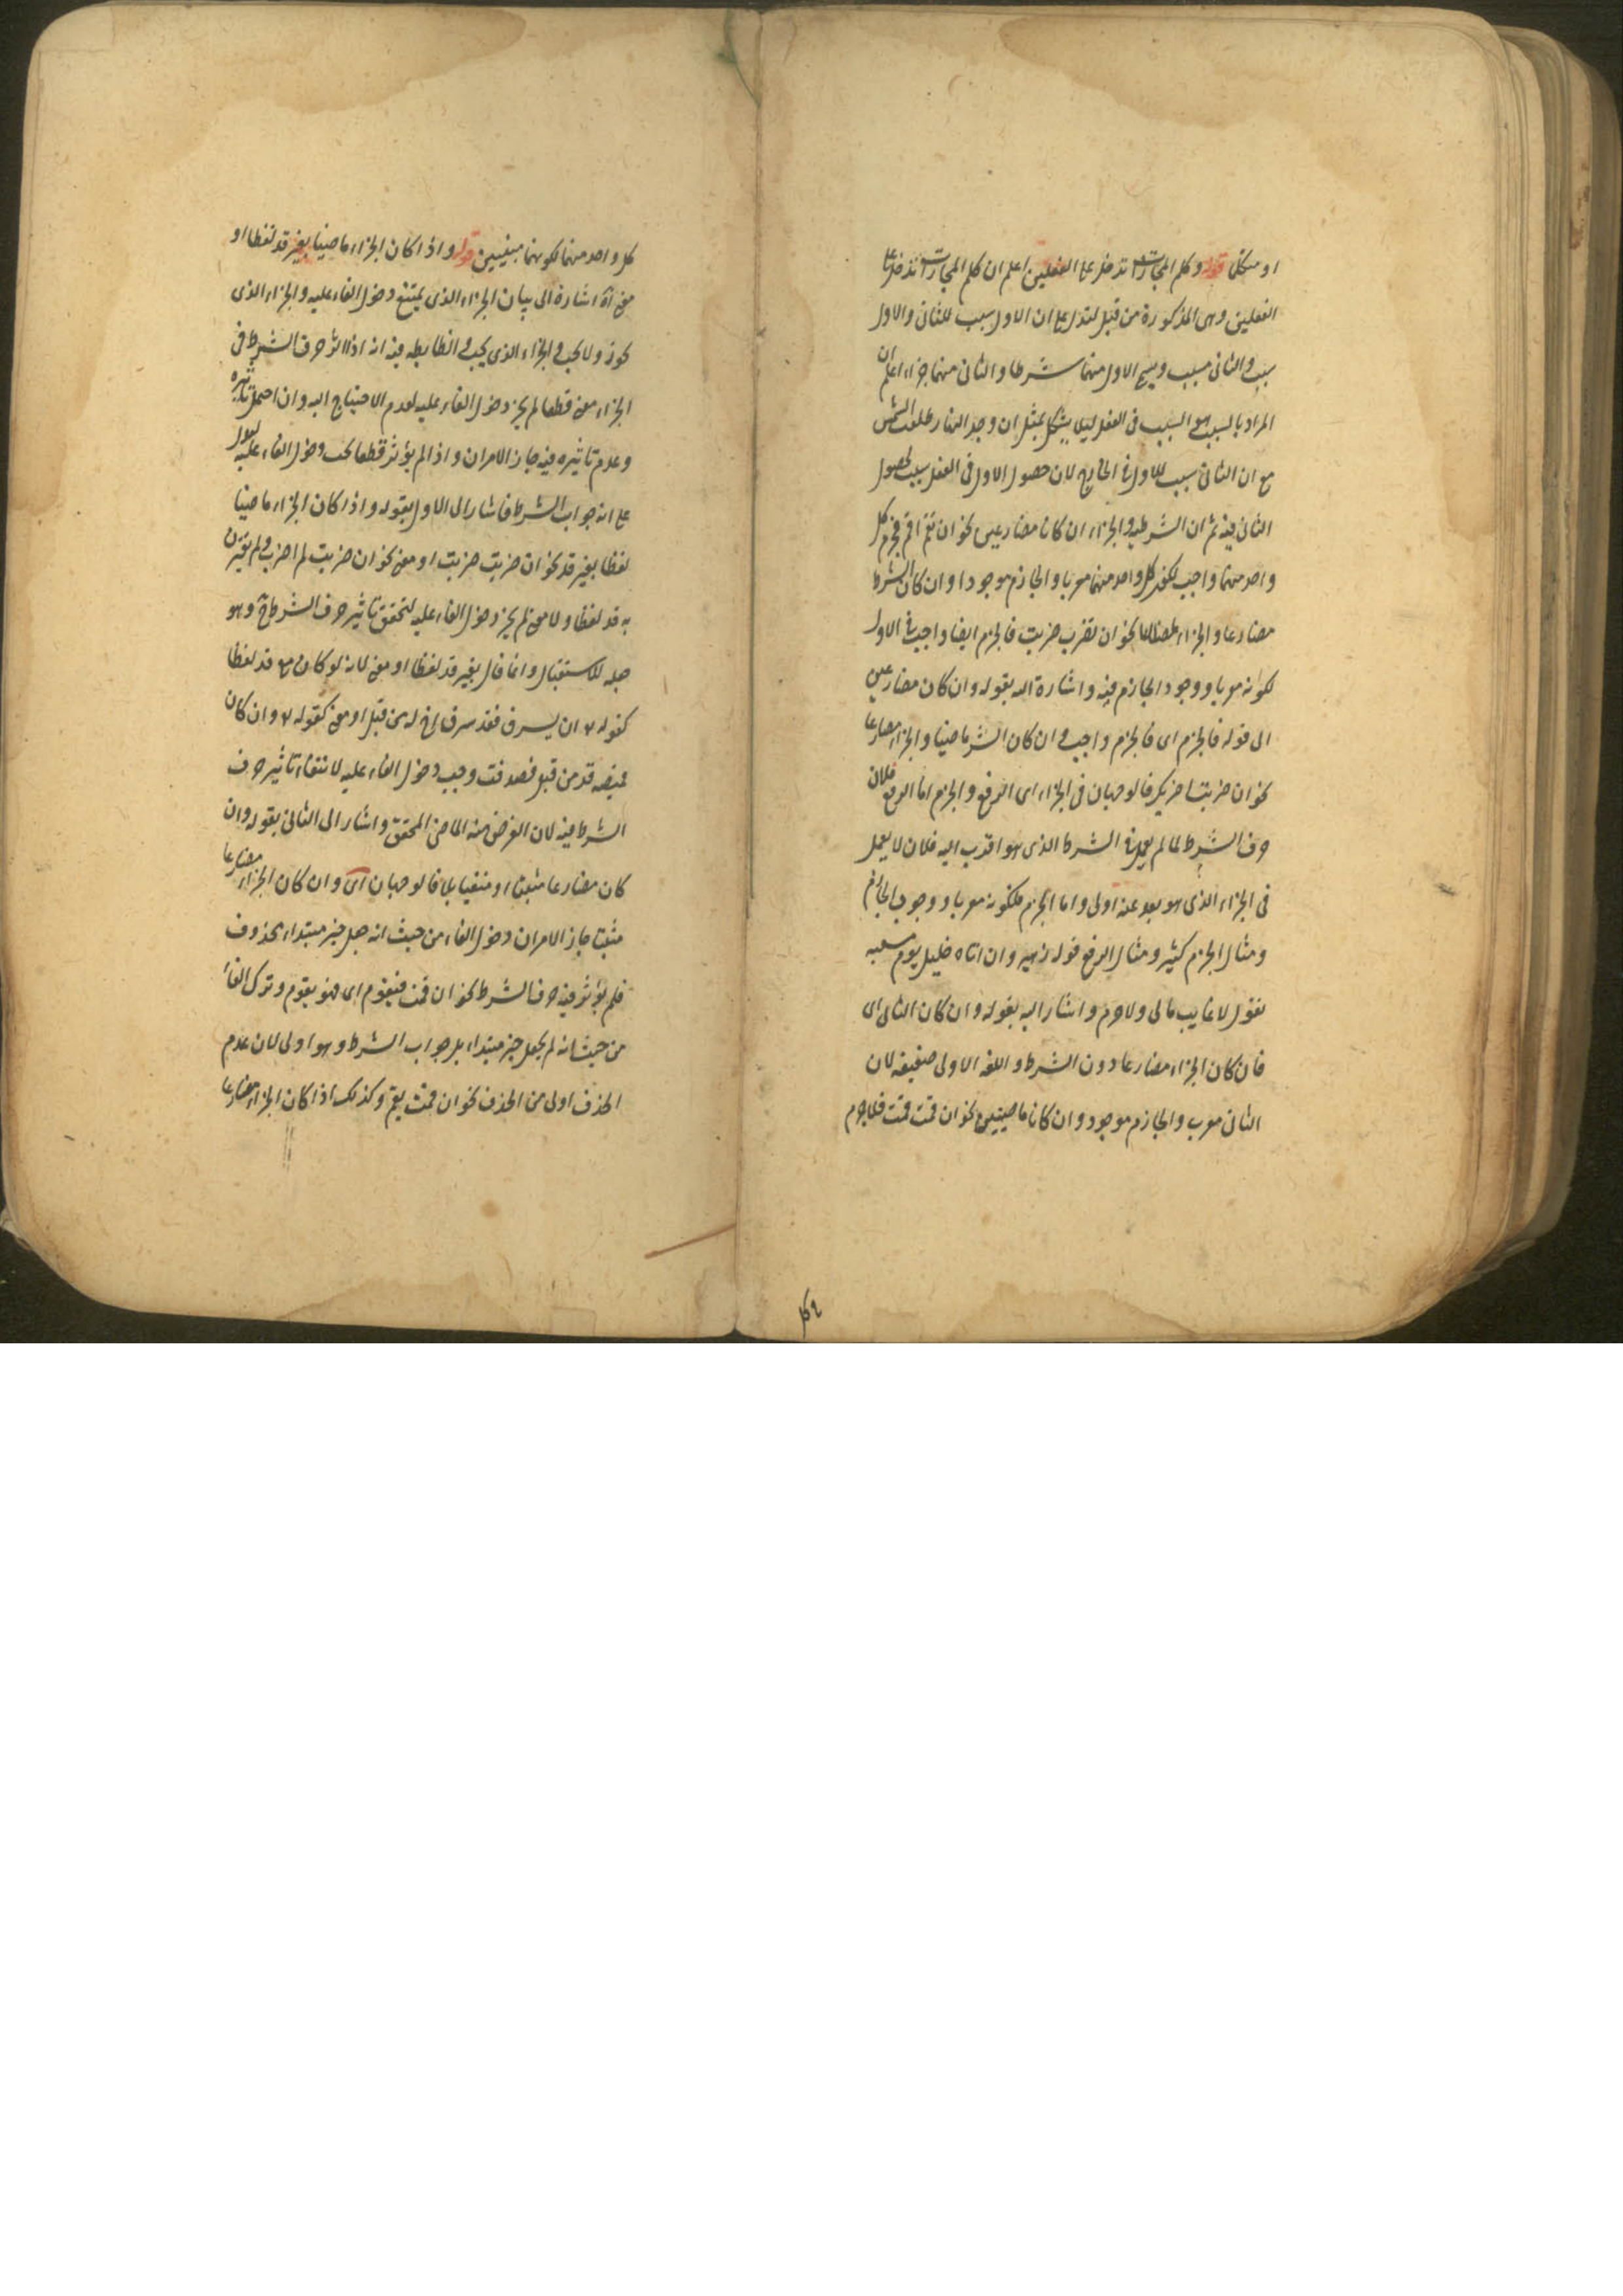 او متكلم قوله وكلم المجازات تدخل على الفعلين اعلم ان كلم المجازات تدخل على
الفعلين وهى المذكورة من قبل لتدل على ان الاول سبب للثانى والاول
سبب والثانى مسبب ويسمى الاول منهما شرطا والثانى منهما جزاء اعلم ان
المراد بالسبب هو السبب فى العقل ليلا يشكل بمثل ان وجد النهار طلعت الشمس
مع ان الثانى سبب للاول فى الخارج لان حصول الاول فى العقل سبب لحصول
الثانى فيه ثم ان الشرط والجزاء ان كانا مضارعين نحو ان تقم اقم فجزم كل
واحد منهما واجب لكون كل واحد منهما معربا والجازم موجودا وان كان الشرط
مضارعا والجزاء نحو ان تضرب ضربت فالجزم ايضا واجب فى الاول
لكونه معربا ووجود الجازم فيه واشارة اليه بقوله وان كان مضارعين
الى قوله فالجزم اى فالجزم واجب وان كان الشرط ماضيا والجزاء مضارعا
نحو ان ضربت اضربك فالوجهان فى الجزاء اى الرفع والجزم اما الرفع فلان
حرف الشرط لما لم يعمل فى الشرط الذى هو اقرب اليه فلان لا يعمل
فى الجزاء الذى هو بعد عنه اولى واما الجزم فلكونه معربا ووجود الجازم
ومثال الجزم كثير ومثال الرفع قوله زهير وان اتاه خليل يوم مسغبه
يقول لا غايب مالى ولا حرم واشار اليه بقوله وان كان الثانى اى
فان كان الجزاء مضارعا دون الشرط واللغه الاولى ضعيفه لان
الثانى معرب والجازم موجود وان كانا ماضيين نحو ان قمت قمت فلا جزم
كل واحد منهما لكونهما مبنيين قوله واذا كان الجزاء ماضيا بغير قد لفظا او
معنى اه اشارة الى بيان الجزاء الذى يمتنع دخول الفاء عليه والجزاء الذى
يجوز ولا يجب والجزاء الذى يجب والضابطه فيه انه اذا اثر حرف الشرط فى
الجزاء معنى قطعا لم يجز دخول الفاء عليه لعدم الاحتياج اليه وان احتمل تاثيره
وعدم تاثيره فيه جاز الامران واذا لم يؤثر قطعا يجب دخول الفاء عليه ليدل
على انه جواب الشرط فاشار الى الاول بقوله واذا كان الجزاء ماضيا
لفظا بغير قد نحو ان ضربت ضربت او معنى نحو ان ضربت لم اضرب ولم يقترن
به قد لفظا ولا معنى لم يجز دخول الفاء عليه لتحقق تاثير حرف الشرط فيه وهو
جعله للاستقبال وانما قال بغير قد لفظا او معنى لانه لو كان مع قد لفظا
كقوله تع ان يسرق فقد سرق اخ له من قبل او معنى كقوله تع وان كان
قميصه قد من قبل فصدقت وجب دخول الفاء عليه لانتفاء تاثير حرف
الشرط فيه لان الغرض منه الماضى المحقق واشار الى الثانى بقوله وان
كان مضارعا مثبتا او منفيا بلا فالوجهان اى وان كان الجزاء مضارعا
مثبتا جاز الامران دخول الفاء من حيث انه جعل خبر مبتداء محذوف
فلم يؤثر فيه حرف الشرط نحو ان قمت فيقوم اى فهو يقوم وترك الفاء
من حيث انه لم يجعل خبر مبتداء بل جواب الشرط وهو اولى لان عدم
الحذف اولى من الحذف نحو ان قمت يقم وكذلك اذا كان الجزاء مضارعا